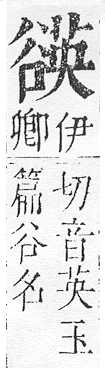 伊
卿
切音英玉
篇谷名